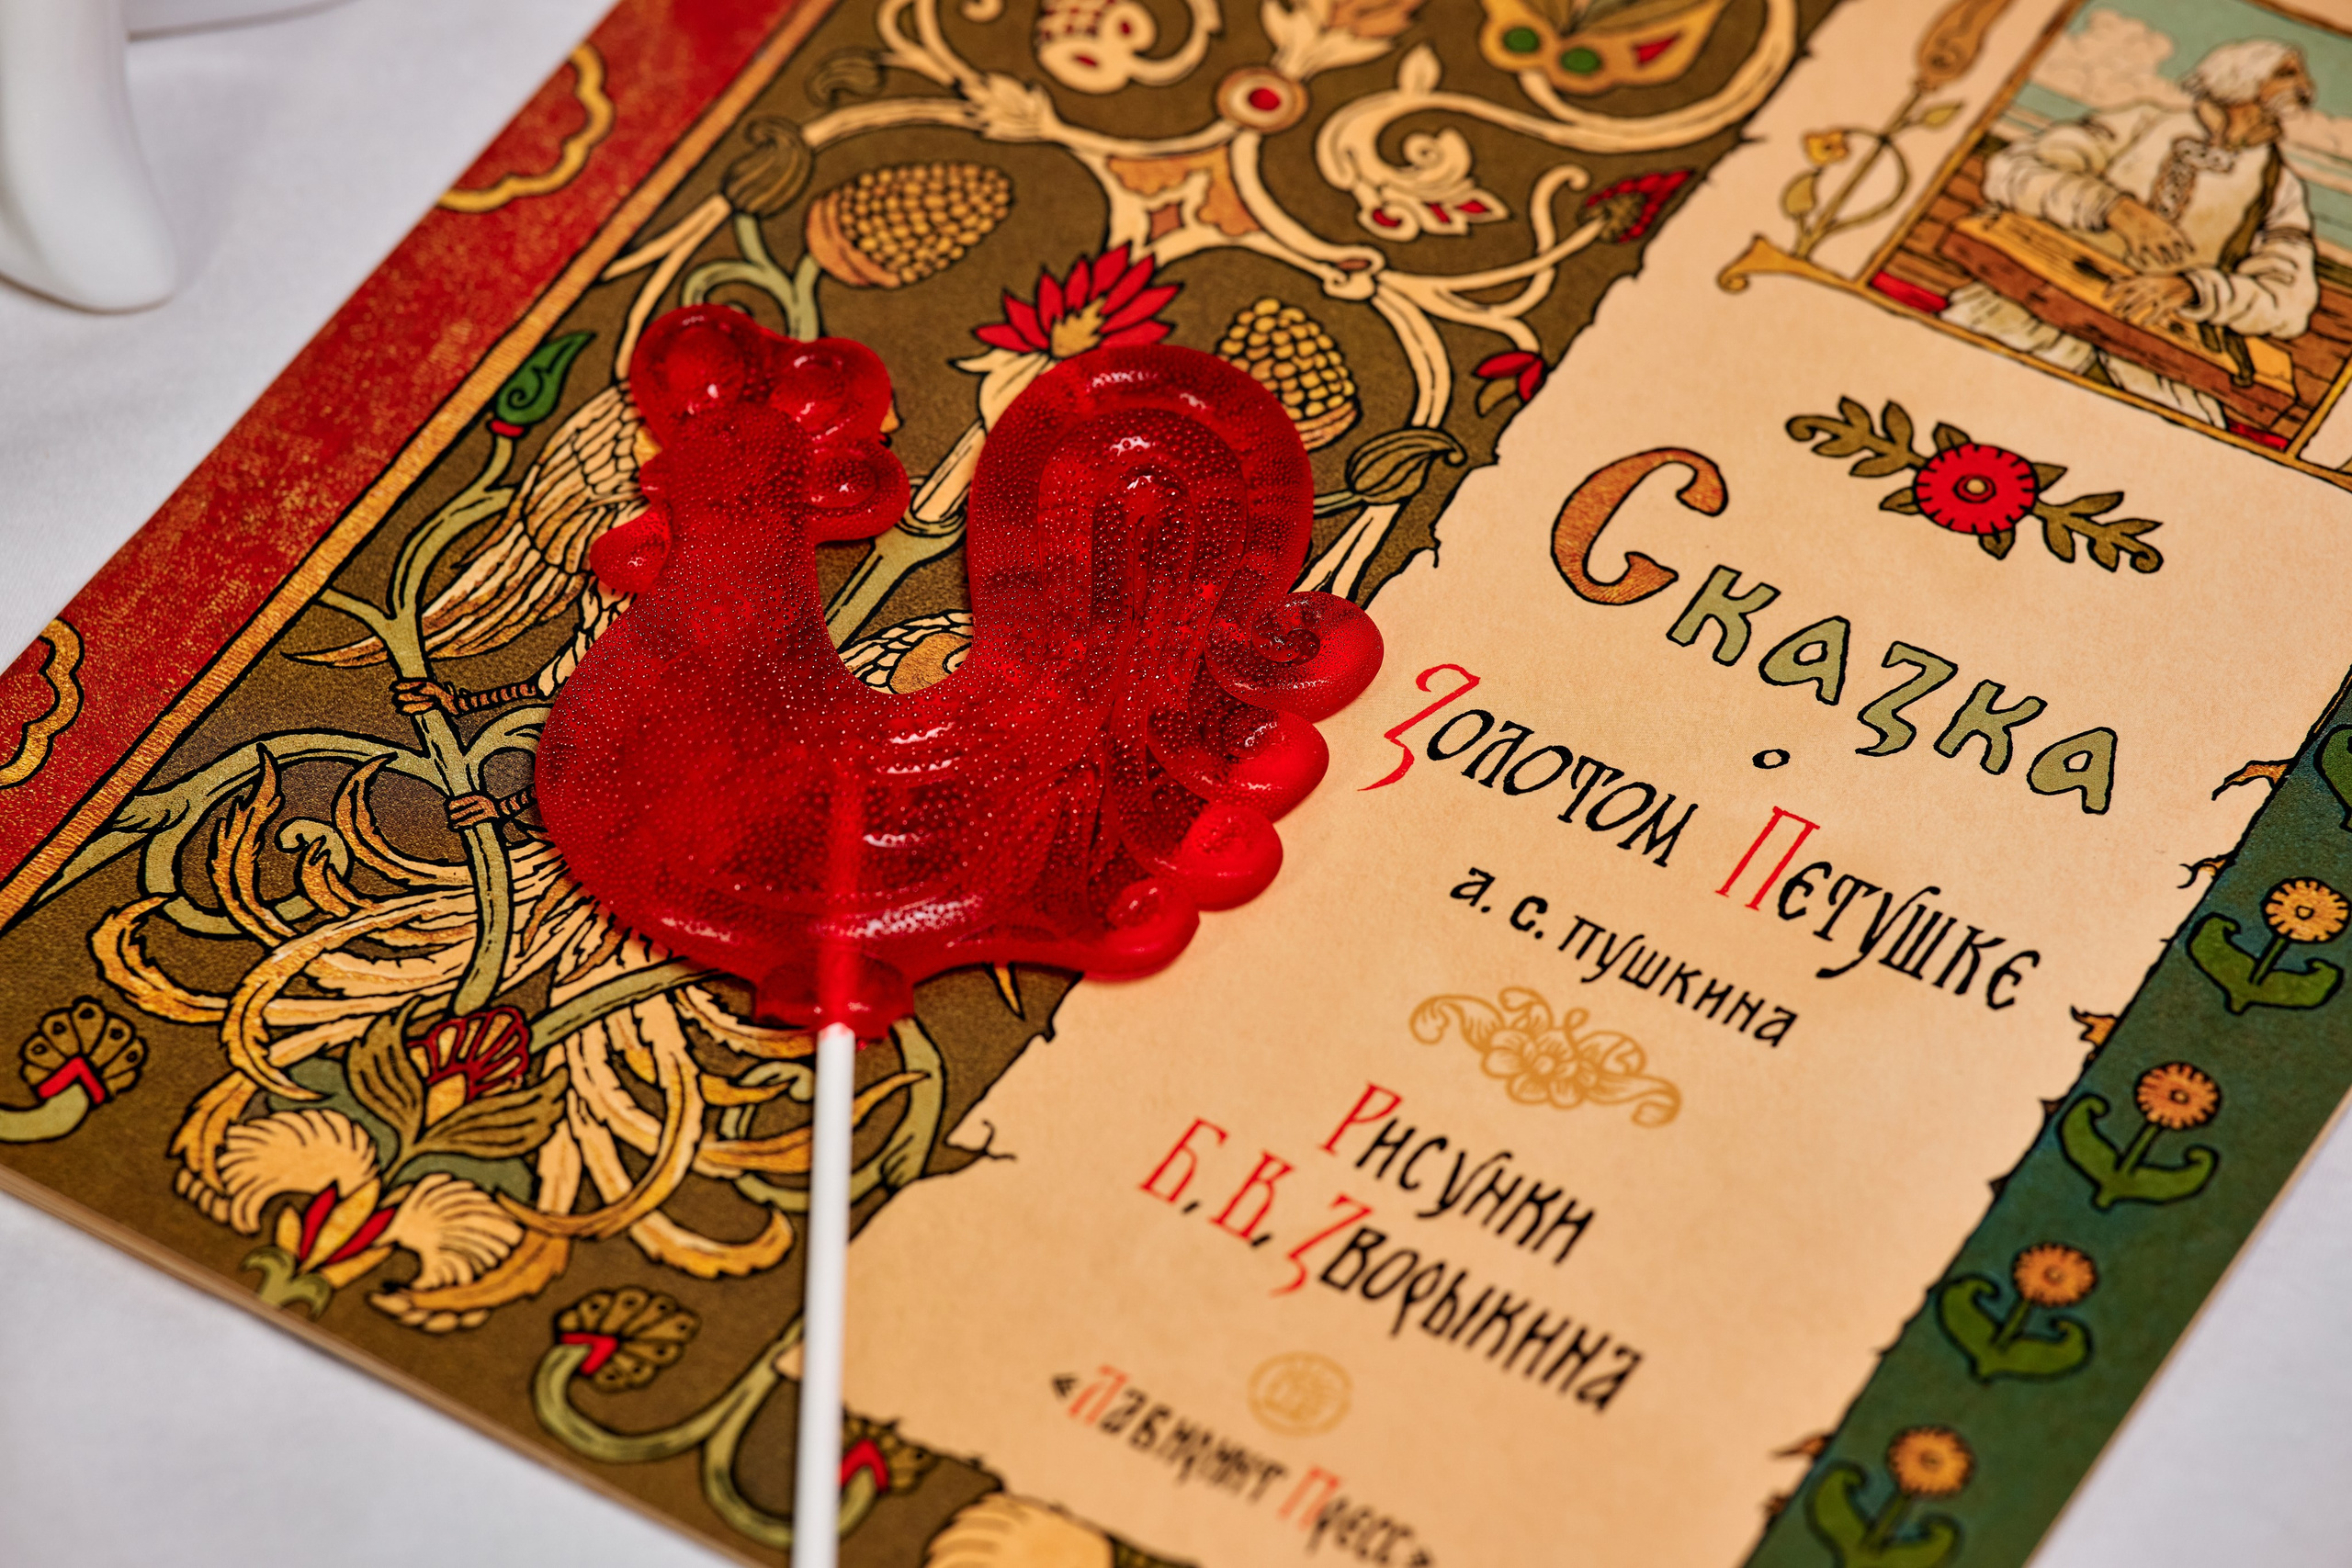 Сказка
о
Золотом Петушке
а. с. пушкина
Рисунки
Б. В. Зворыкина
«Лабиринт Пресс»